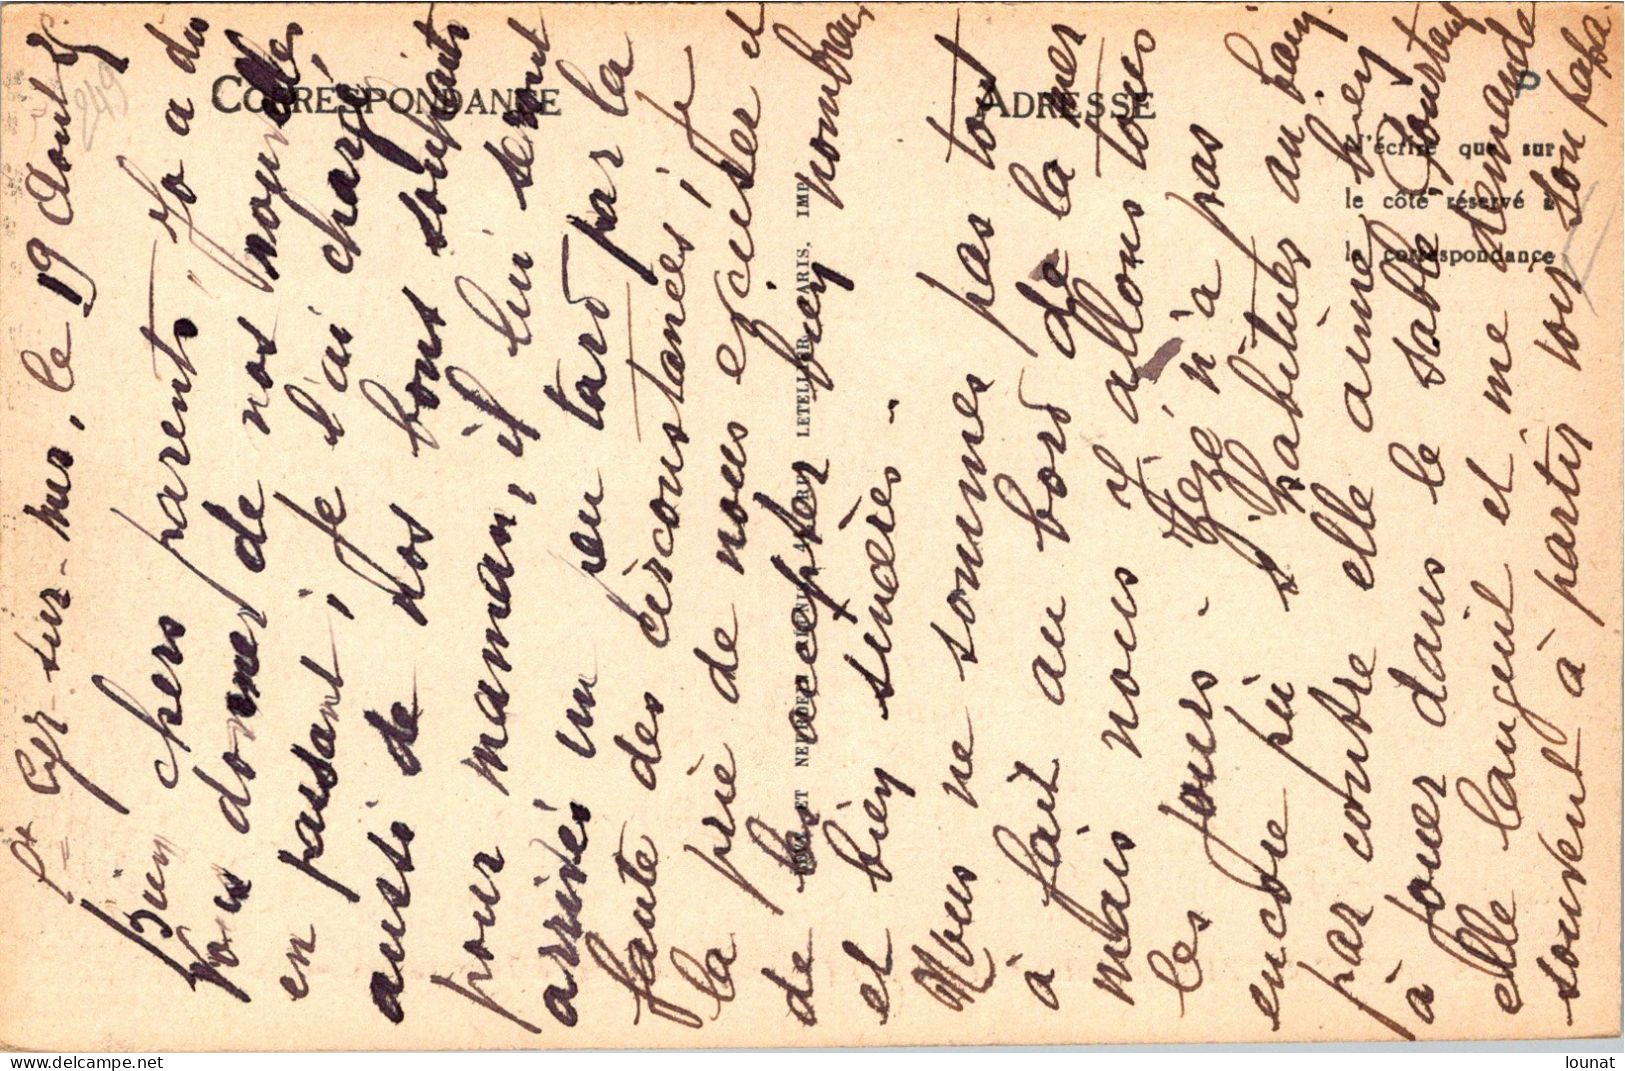 St Cyr-sur-Mer, le 19 Aout 25
249
Bien chers parents, Jo a du
vous donner de nos nouvelles
en passant, je l'ai chargé
aussi de nos bons souhaits
pour maman, il lui seront
arrivés un peu tard par la
faute des circonstances! Je
la prie de nous excuser et
de les accepter bien nombreux
et bien sincères.
Nous ne sommes pas tout
à fait au bord de la mer
mais nous y allons tous
les jours. Zézé n'a pas
encore pu s'habituer au bain
par contre elle aime bien
à jouer dans le sable. Pourtant
elle languit et me demande
souvent à partir voir son papa.
CORRESPONDANCE
ADRESSE
N'écrire que sur
le côté réservé à
la correspondance
LETELLIER PARIS. IMP
P
lounat